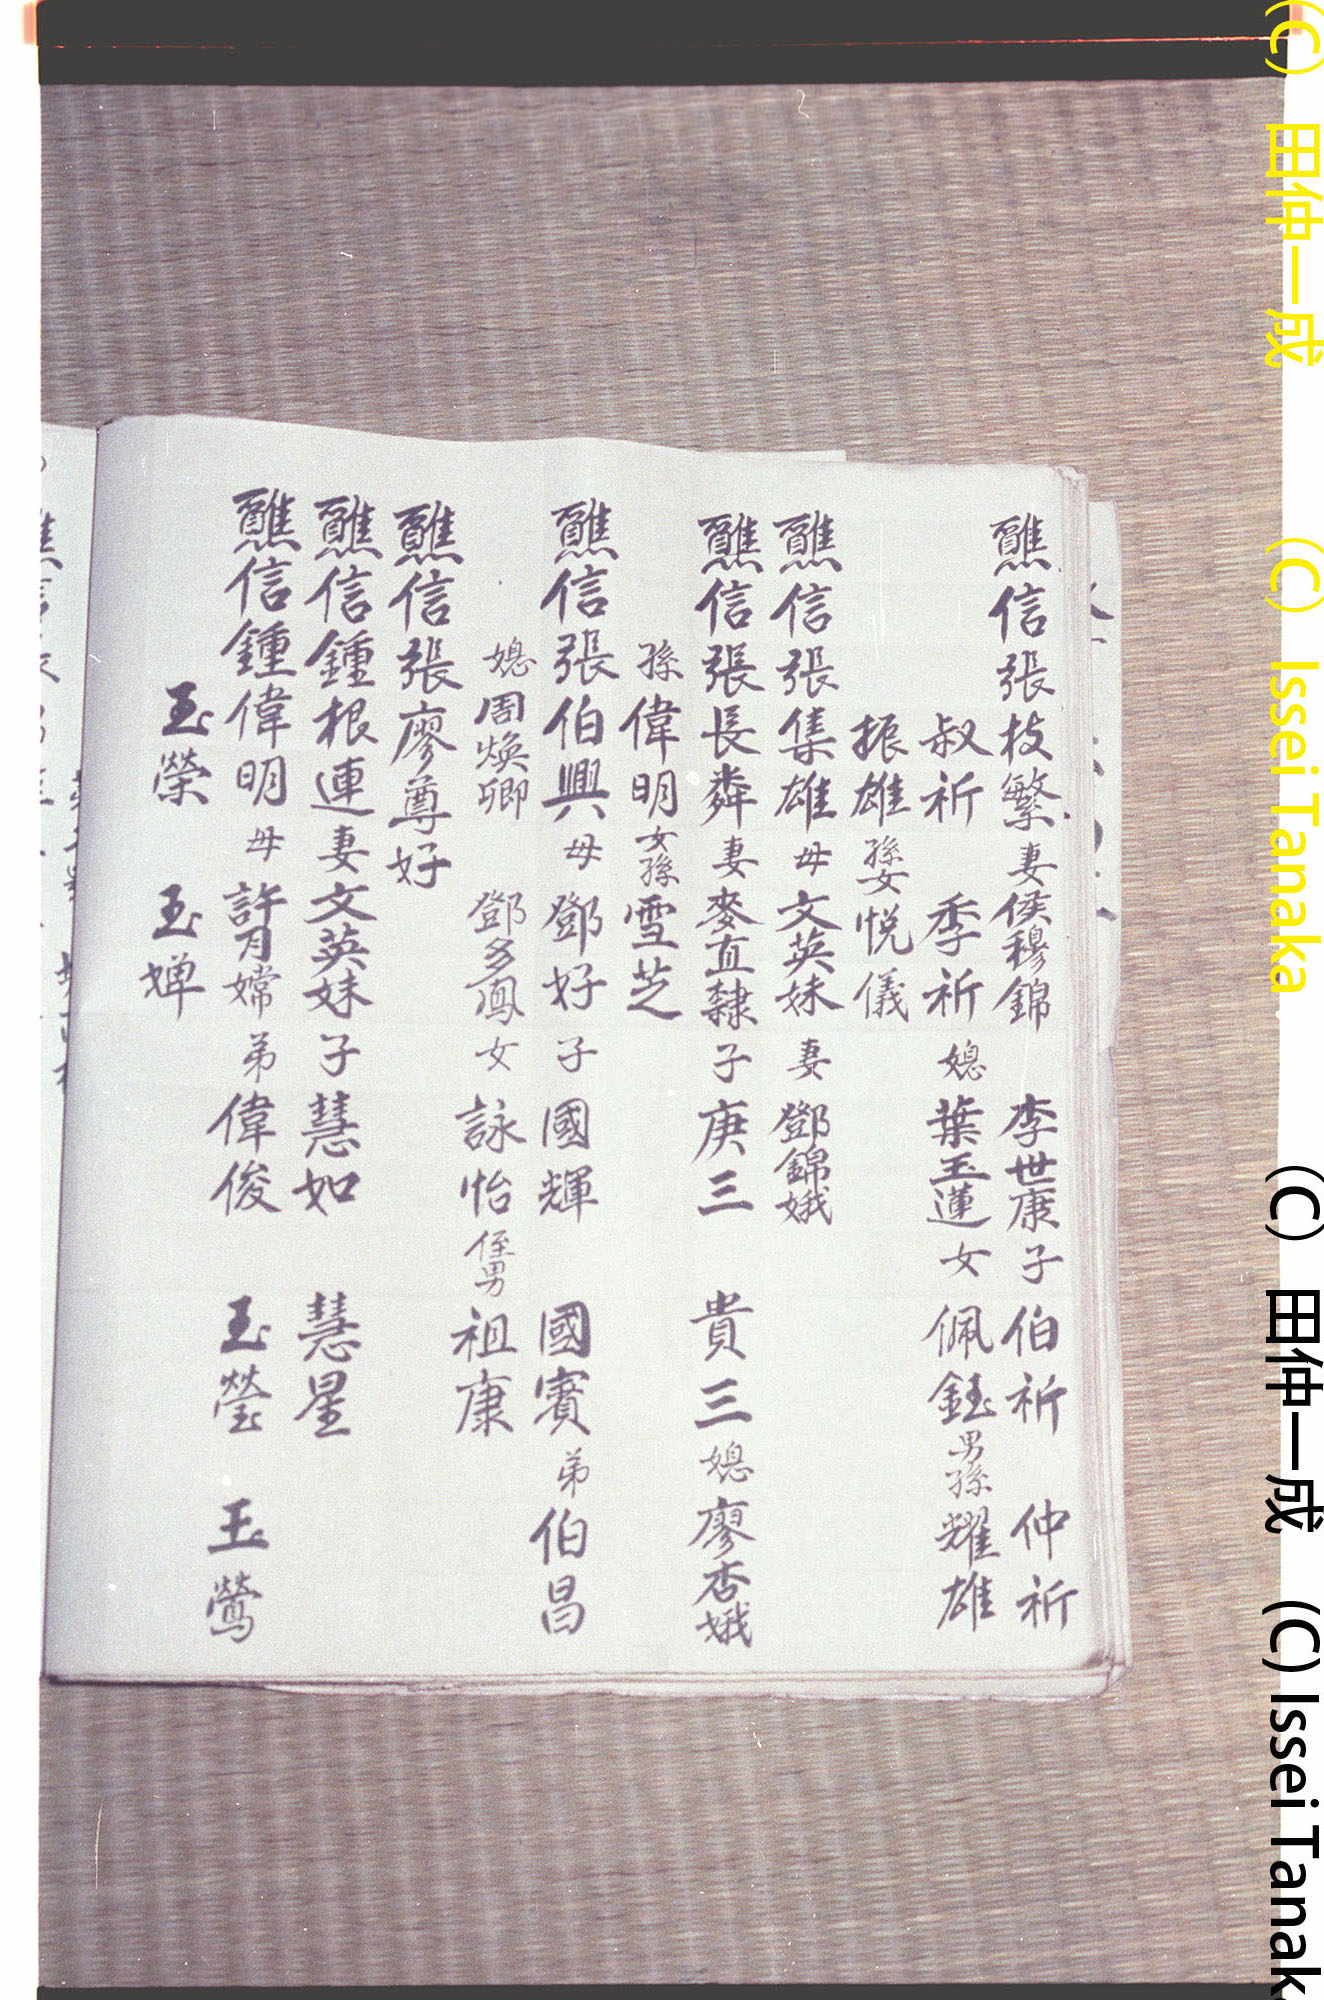 醮信張枝繁妻侯穆錦 李世康子伯祈 仲祈
叔祈 季祈媳葉玉蓮女佩鈺男孫耀雄
振雄孫女悦儀
醮信張集雄母文英妹妻鄧錦娥
醮信張長粦妻麥直隸子庚三 貴三媳廖杏娥
孫偉明女孫雪芝
醮信張伯興母鄧好子國輝 國賓弟伯昌
媳周煥卿 鄧多鳳女詠怡侄男祖康
醮信張廖尊好
醮信鍾根連妻文英妹子慧如 慧星
醮信鍾偉明母許月嫦弟偉俊 玉瑩 玉鶯
玉榮 玉嬋
(C) 田仲一成 (C) Issei Tanaka
(C) 田仲一成 (C) Issei Tanak